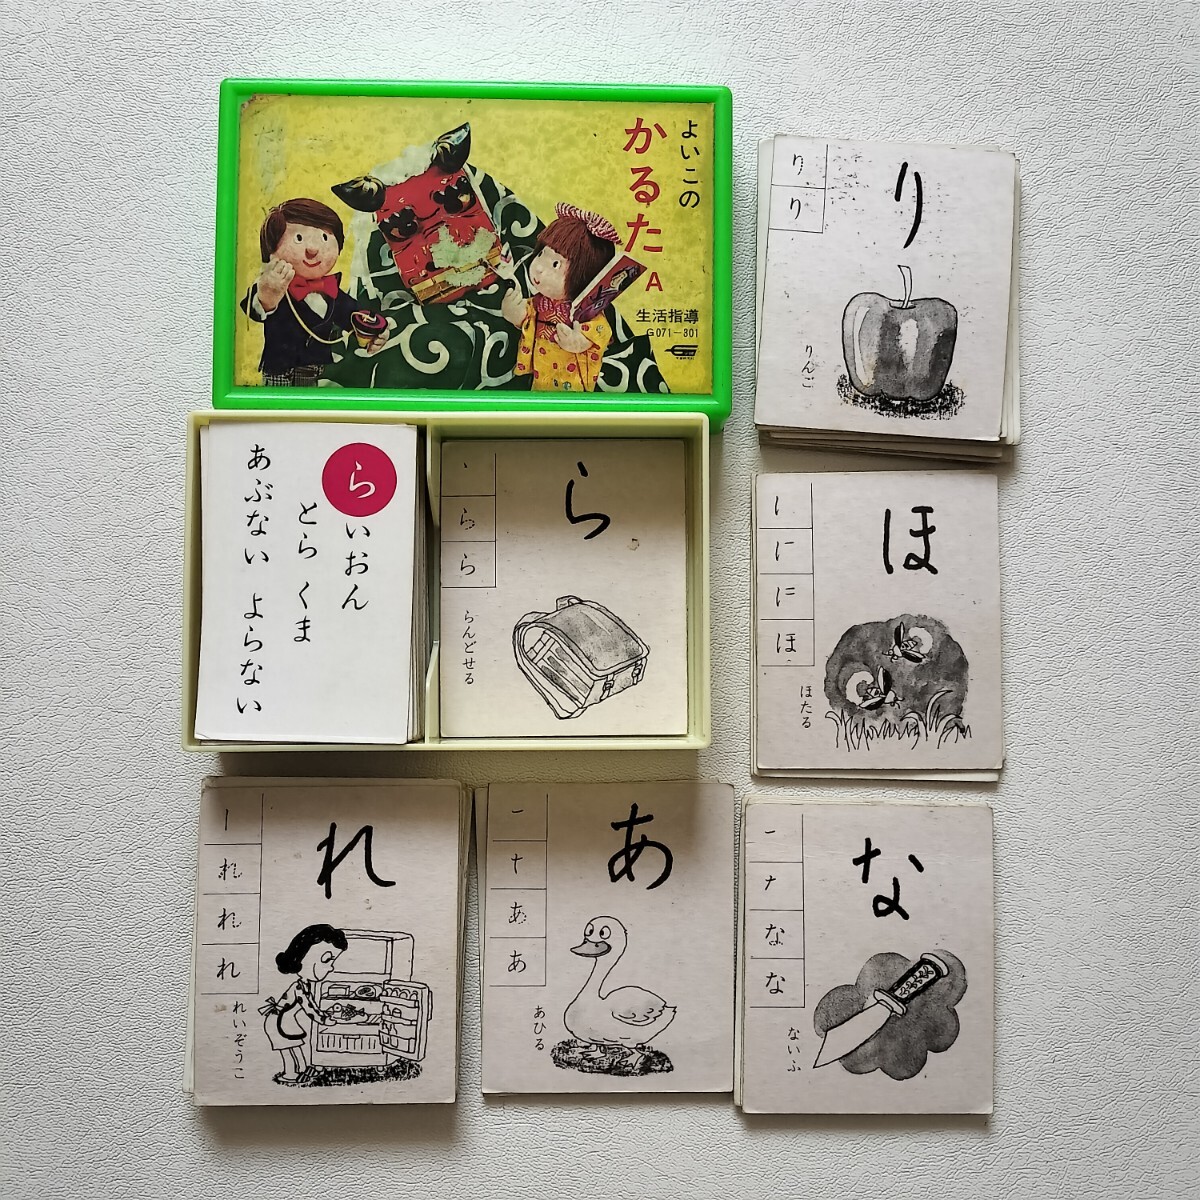 よいこの
かるた A
生活指導
G071-801
り
り
り
りんご
らいおん
とら くま
あぶない よらない
ら
ら
ら
らんどせる
ほ
ほ
ほたる
れ
れ
れ
れいぞうこ
あ
あ
あ
あひる
な
な
な
ないふ